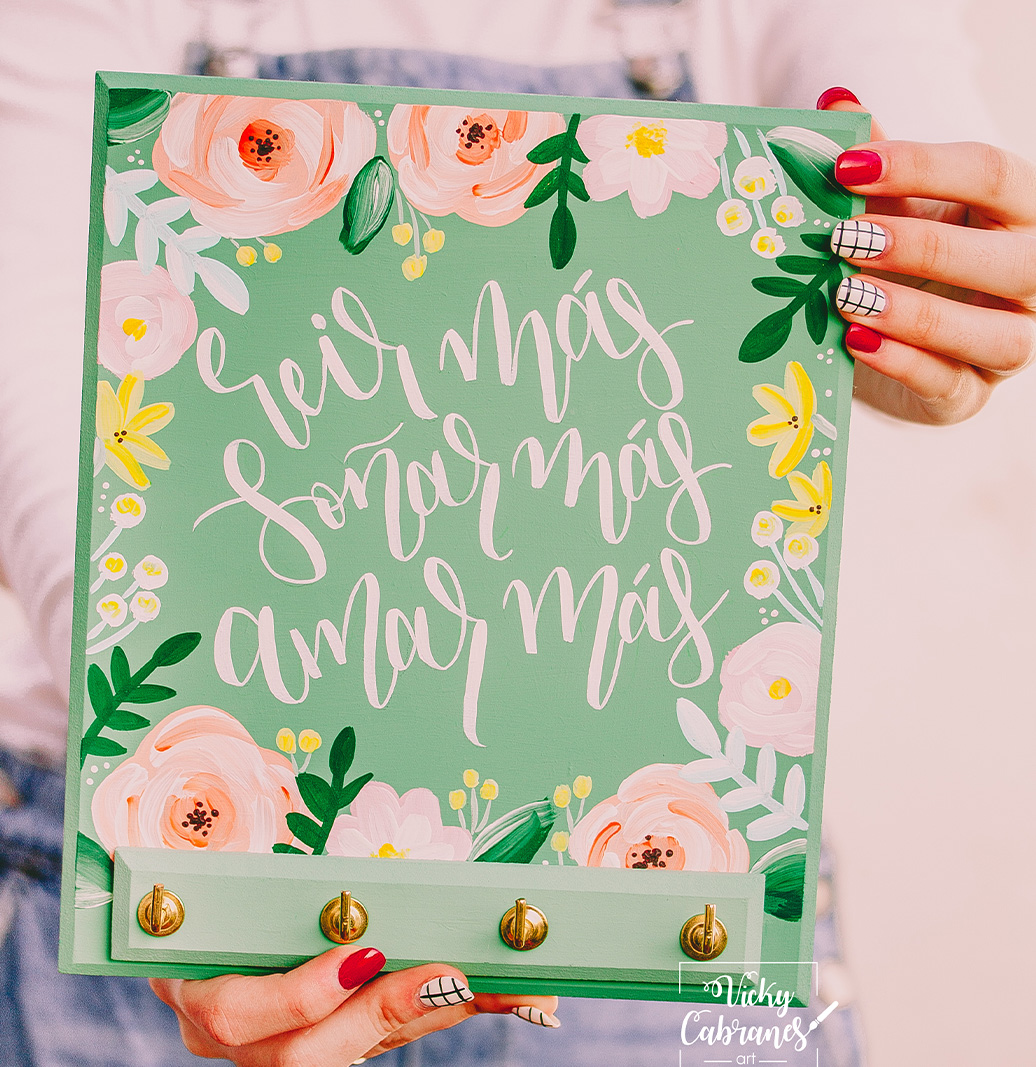 reir más
soñar más
amar más
Vicky
Cabranes
art